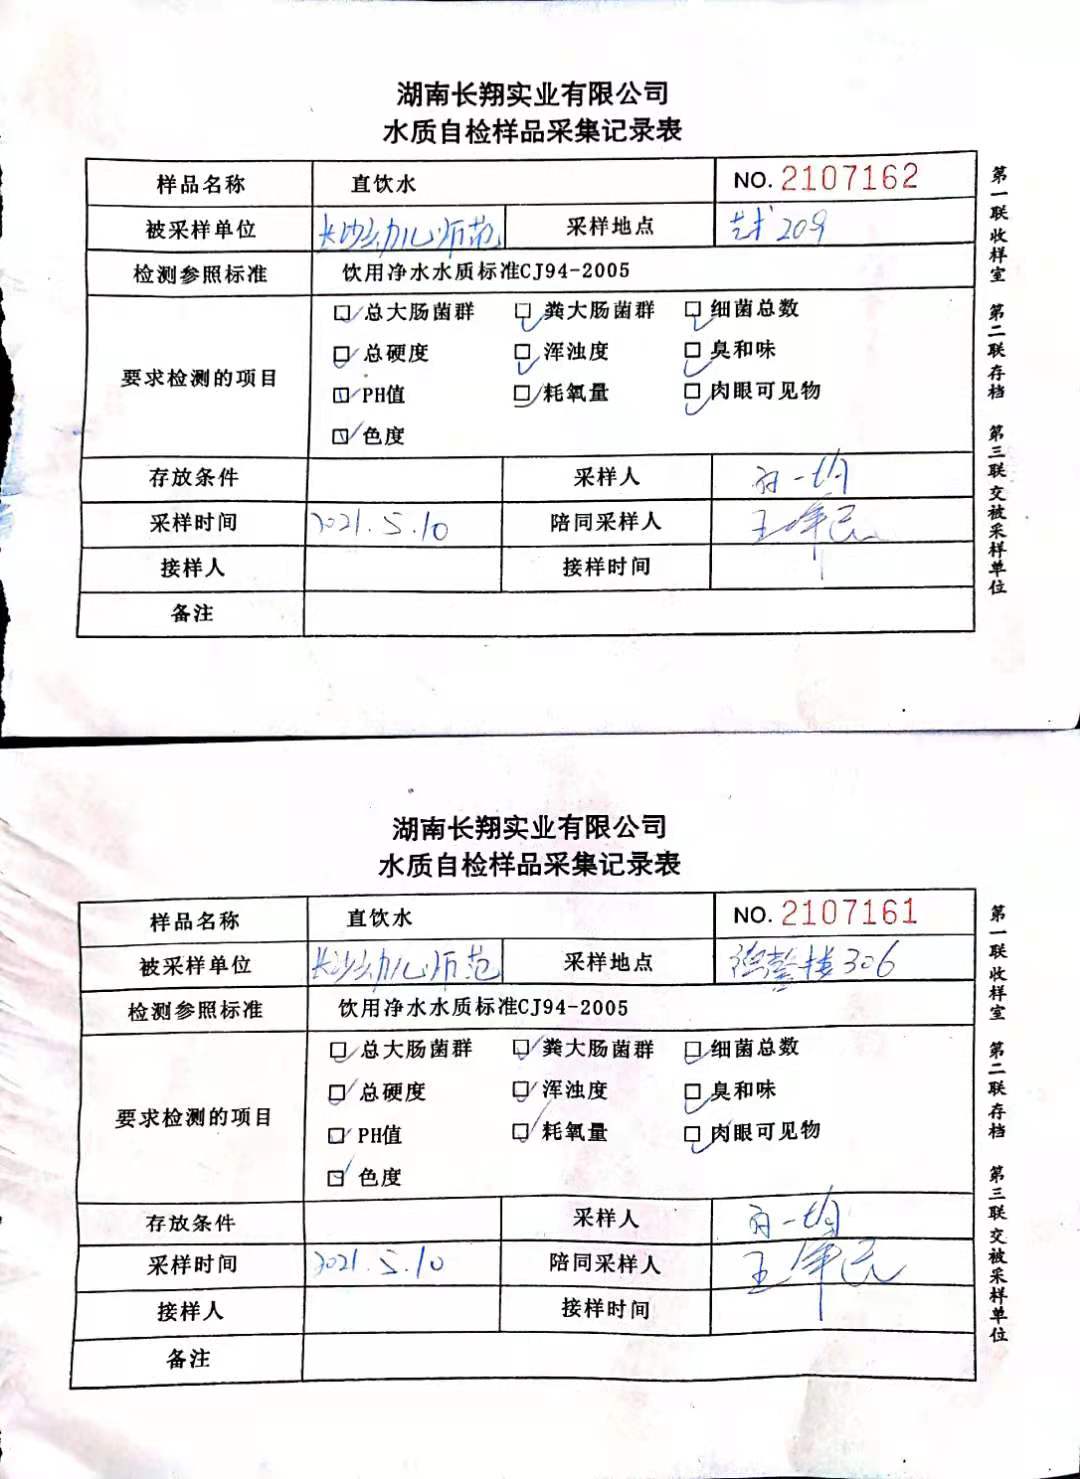 湖南长翔实业有限公司
水质自检样品采集记录表
样品名称 直饮水 NO. 2107162
被采样单位 长沙幼儿师范 采样地点 艺术209
检测参照标准 饮用净水水质标准CJ94-2005
要求检测的项目
☑总大肠菌群 ☑粪大肠菌群 ☑细菌总数
☑总硬度 ☑浑浊度 ☑臭和味
☑PH值 ☑耗氧量 ☑肉眼可见物
☑色度
存放条件 采样人
采样时间 2021.5.10 陪同采样人
接样人 接样时间
备注
第一联收样室 第二联存档 第三联交被采样单位
湖南长翔实业有限公司
水质自检样品采集记录表
样品名称 直饮水 NO. 2107161
被采样单位 长沙幼儿师范 采样地点 楼306
检测参照标准 饮用净水水质标准CJ94-2005
要求检测的项目
☑总大肠菌群 ☑粪大肠菌群 ☑细菌总数
☑总硬度 ☑浑浊度 ☑臭和味
☑PH值 ☑耗氧量 ☑肉眼可见物
☑色度
存放条件 采样人
采样时间 2021.5.10 陪同采样人
接样人 接样时间
备注
第一联收样室 第二联存档 第三联交被采样单位